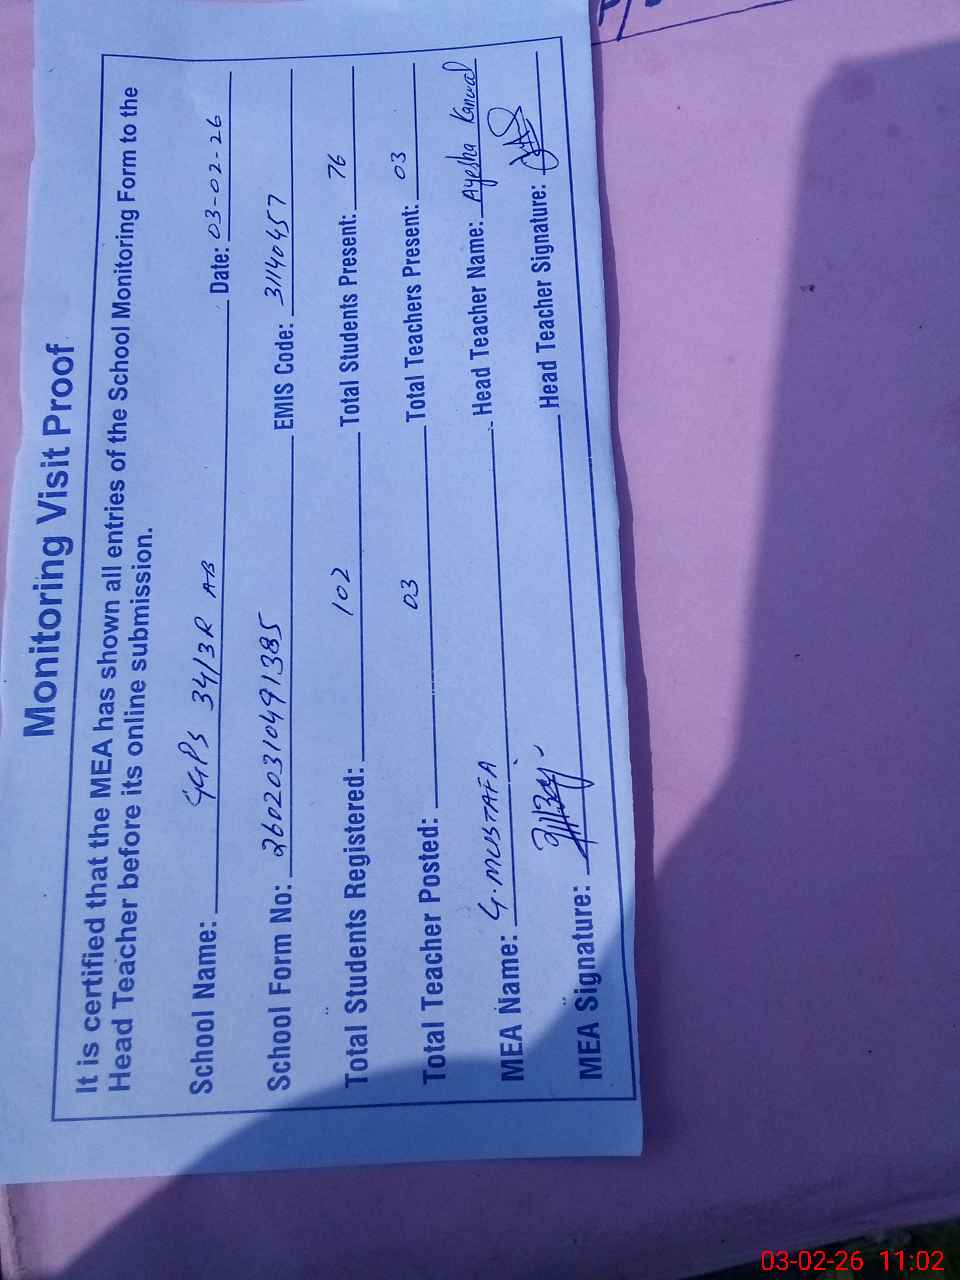 Monitoring Visit Proof
It is certified that the MEA has shown all entries of the School Monitoring Form to the
Head Teacher before its online submission.
School Name: GGPS 34/3R AB Date: 03-02-26
School Form No: 2602031049 1385 EMIS Code: 31140457
Total Students Registered: 102 Total Students Present: 76
Total Teacher Posted: 03 Total Teachers Present: 03
MEA Name: G. MUSTAFA Head Teacher Name: Ayesha Kanwal
MEA Signature: Head Teacher Signature:
03-02-26 11:02